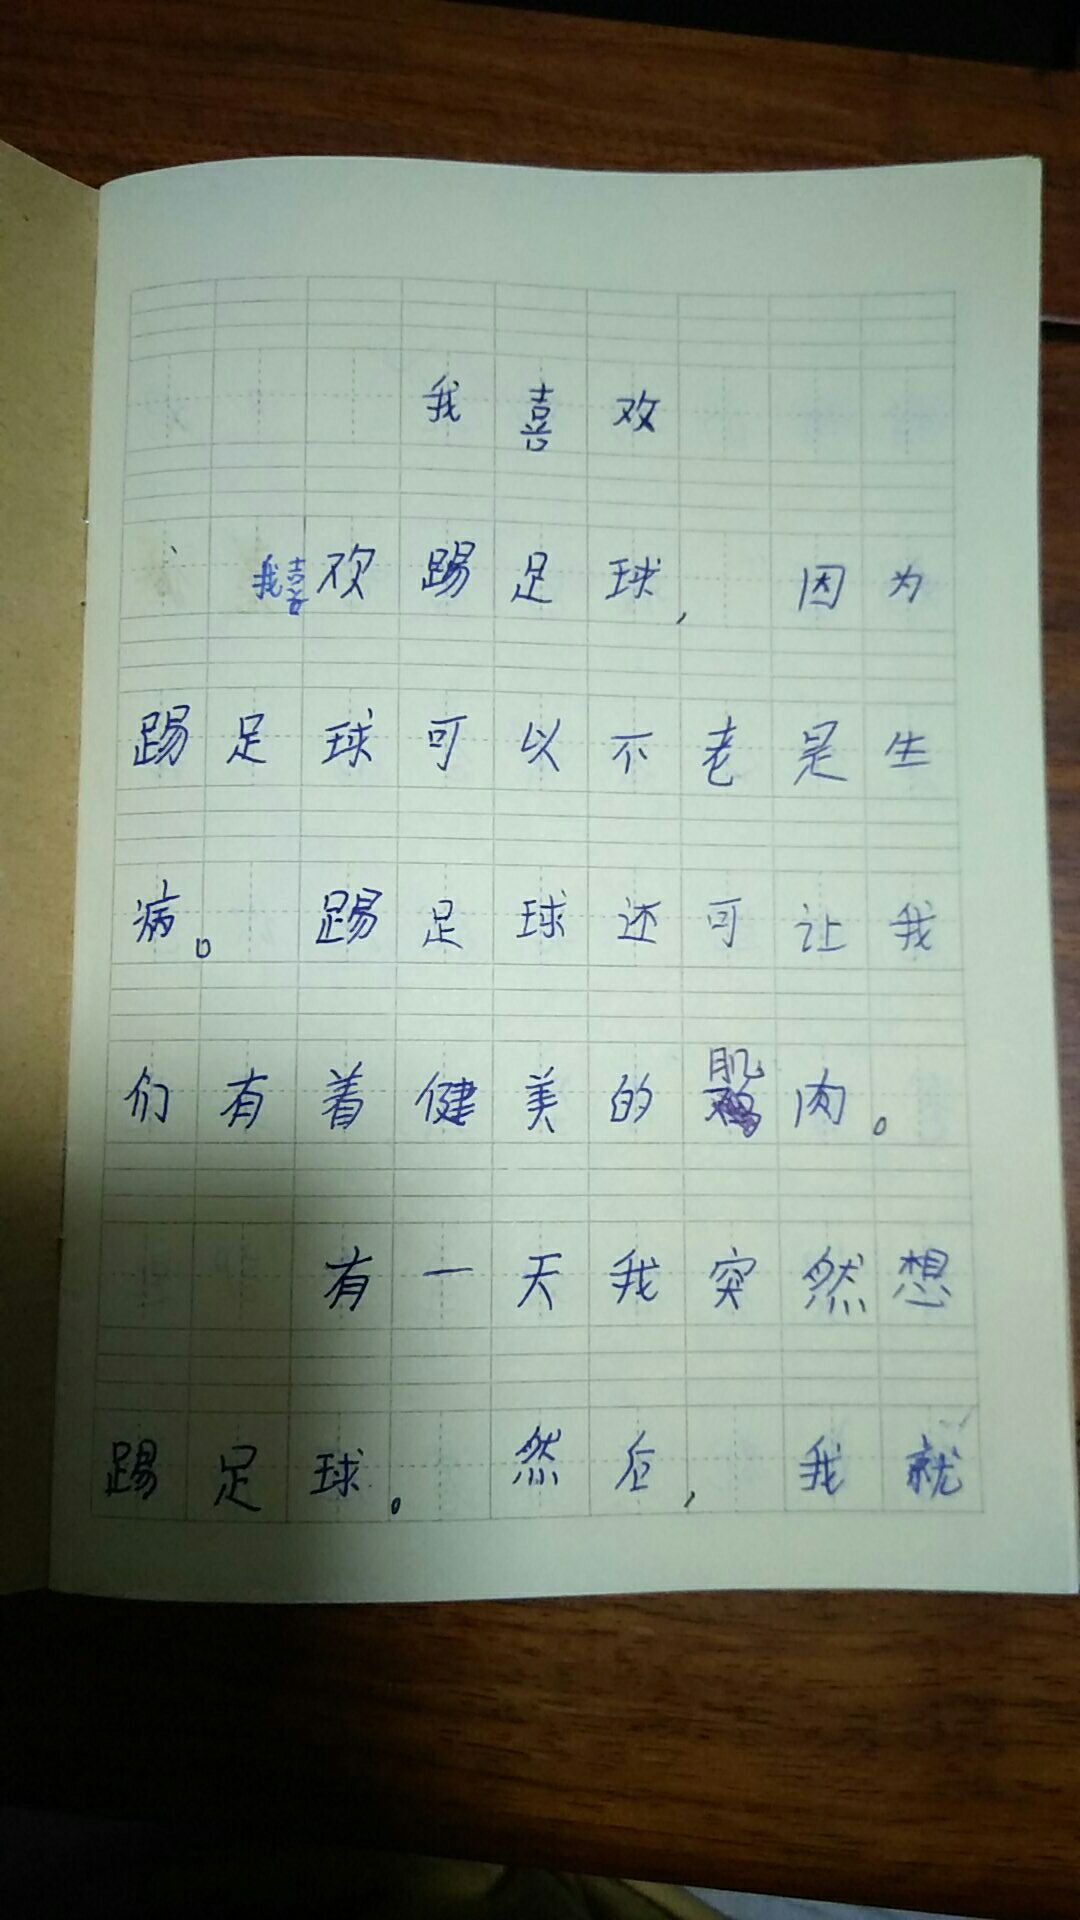 我喜欢
我喜欢踢足球，因为
踢足球可以不老是生
病。踢足球还可让我
们有着健美的肌肉。
有一天我突然想
踢足球。然后，我就